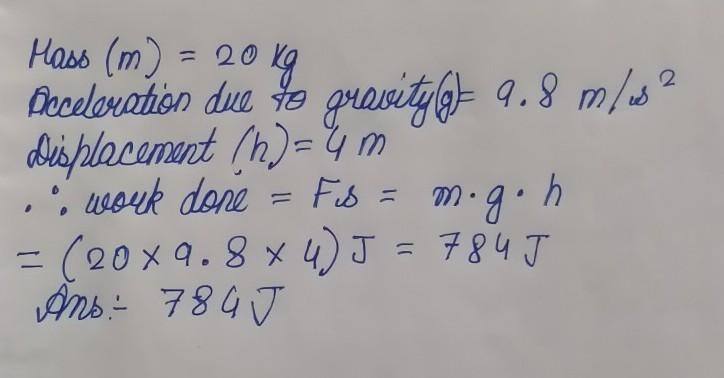 Mass (m) = 20 Kg
Acceleration due to gravity(g)= 9.8 m/s²
Displacement (h)= 4 m
∴ work done = Fs = m·g·h
= (20 × 9.8 × 4) J = 784 J
Ans:- 784 J